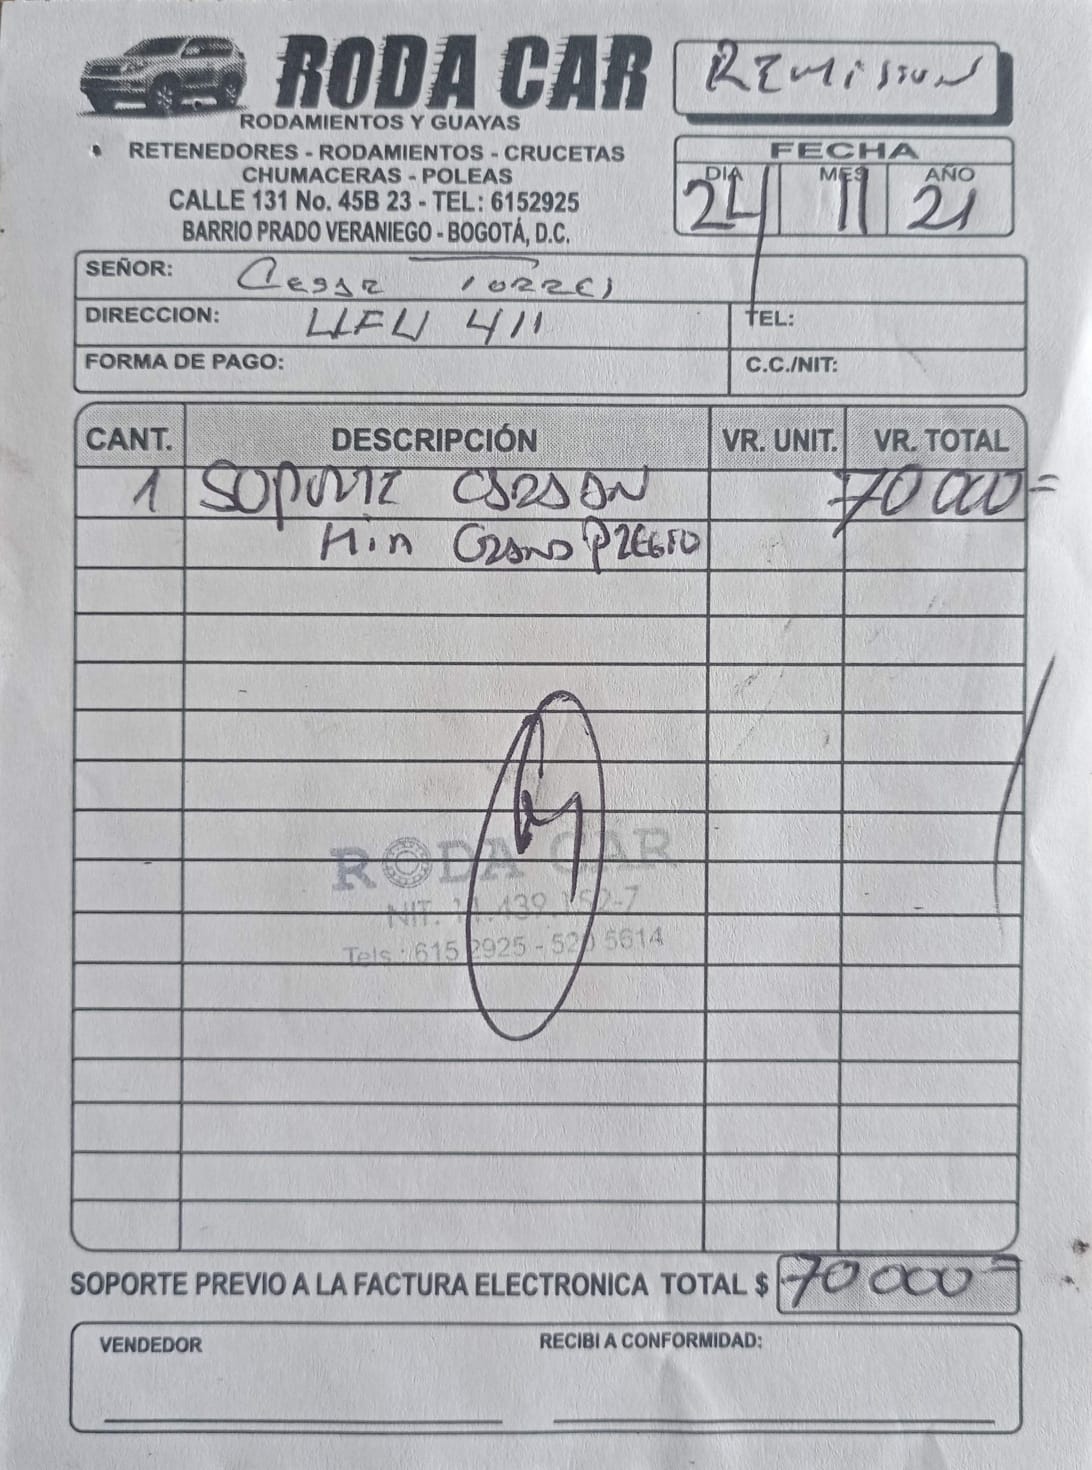 RODA CAR
REMISION
RODAMIENTOS Y GUAYAS
RETENEDORES - RODAMIENTOS - CRUCETAS
CHUMACERAS - POLEAS
CALLE 131 No. 45B 23 - TEL: 6152925
BARRIO PRADO VERANIEGO - BOGOTÁ, D.C.
FECHA
DIA MES AÑO
24 11 21
SEÑOR: Cesar Torres
DIRECCION: UFU 411 TEL:
FORMA DE PAGO: C.C./NIT:
CANT. DESCRIPCIÓN VR. UNIT. VR. TOTAL
1 SOPORTE CARDAN 70 000=
Kia GRAND PREGIO
RODA CAR
NIT. 11.439.152-7
Tels.: 615 2925 - 520 5614
SOPORTE PREVIO A LA FACTURA ELECTRONICA TOTAL $ 70 000=
VENDEDOR RECIBI A CONFORMIDAD: